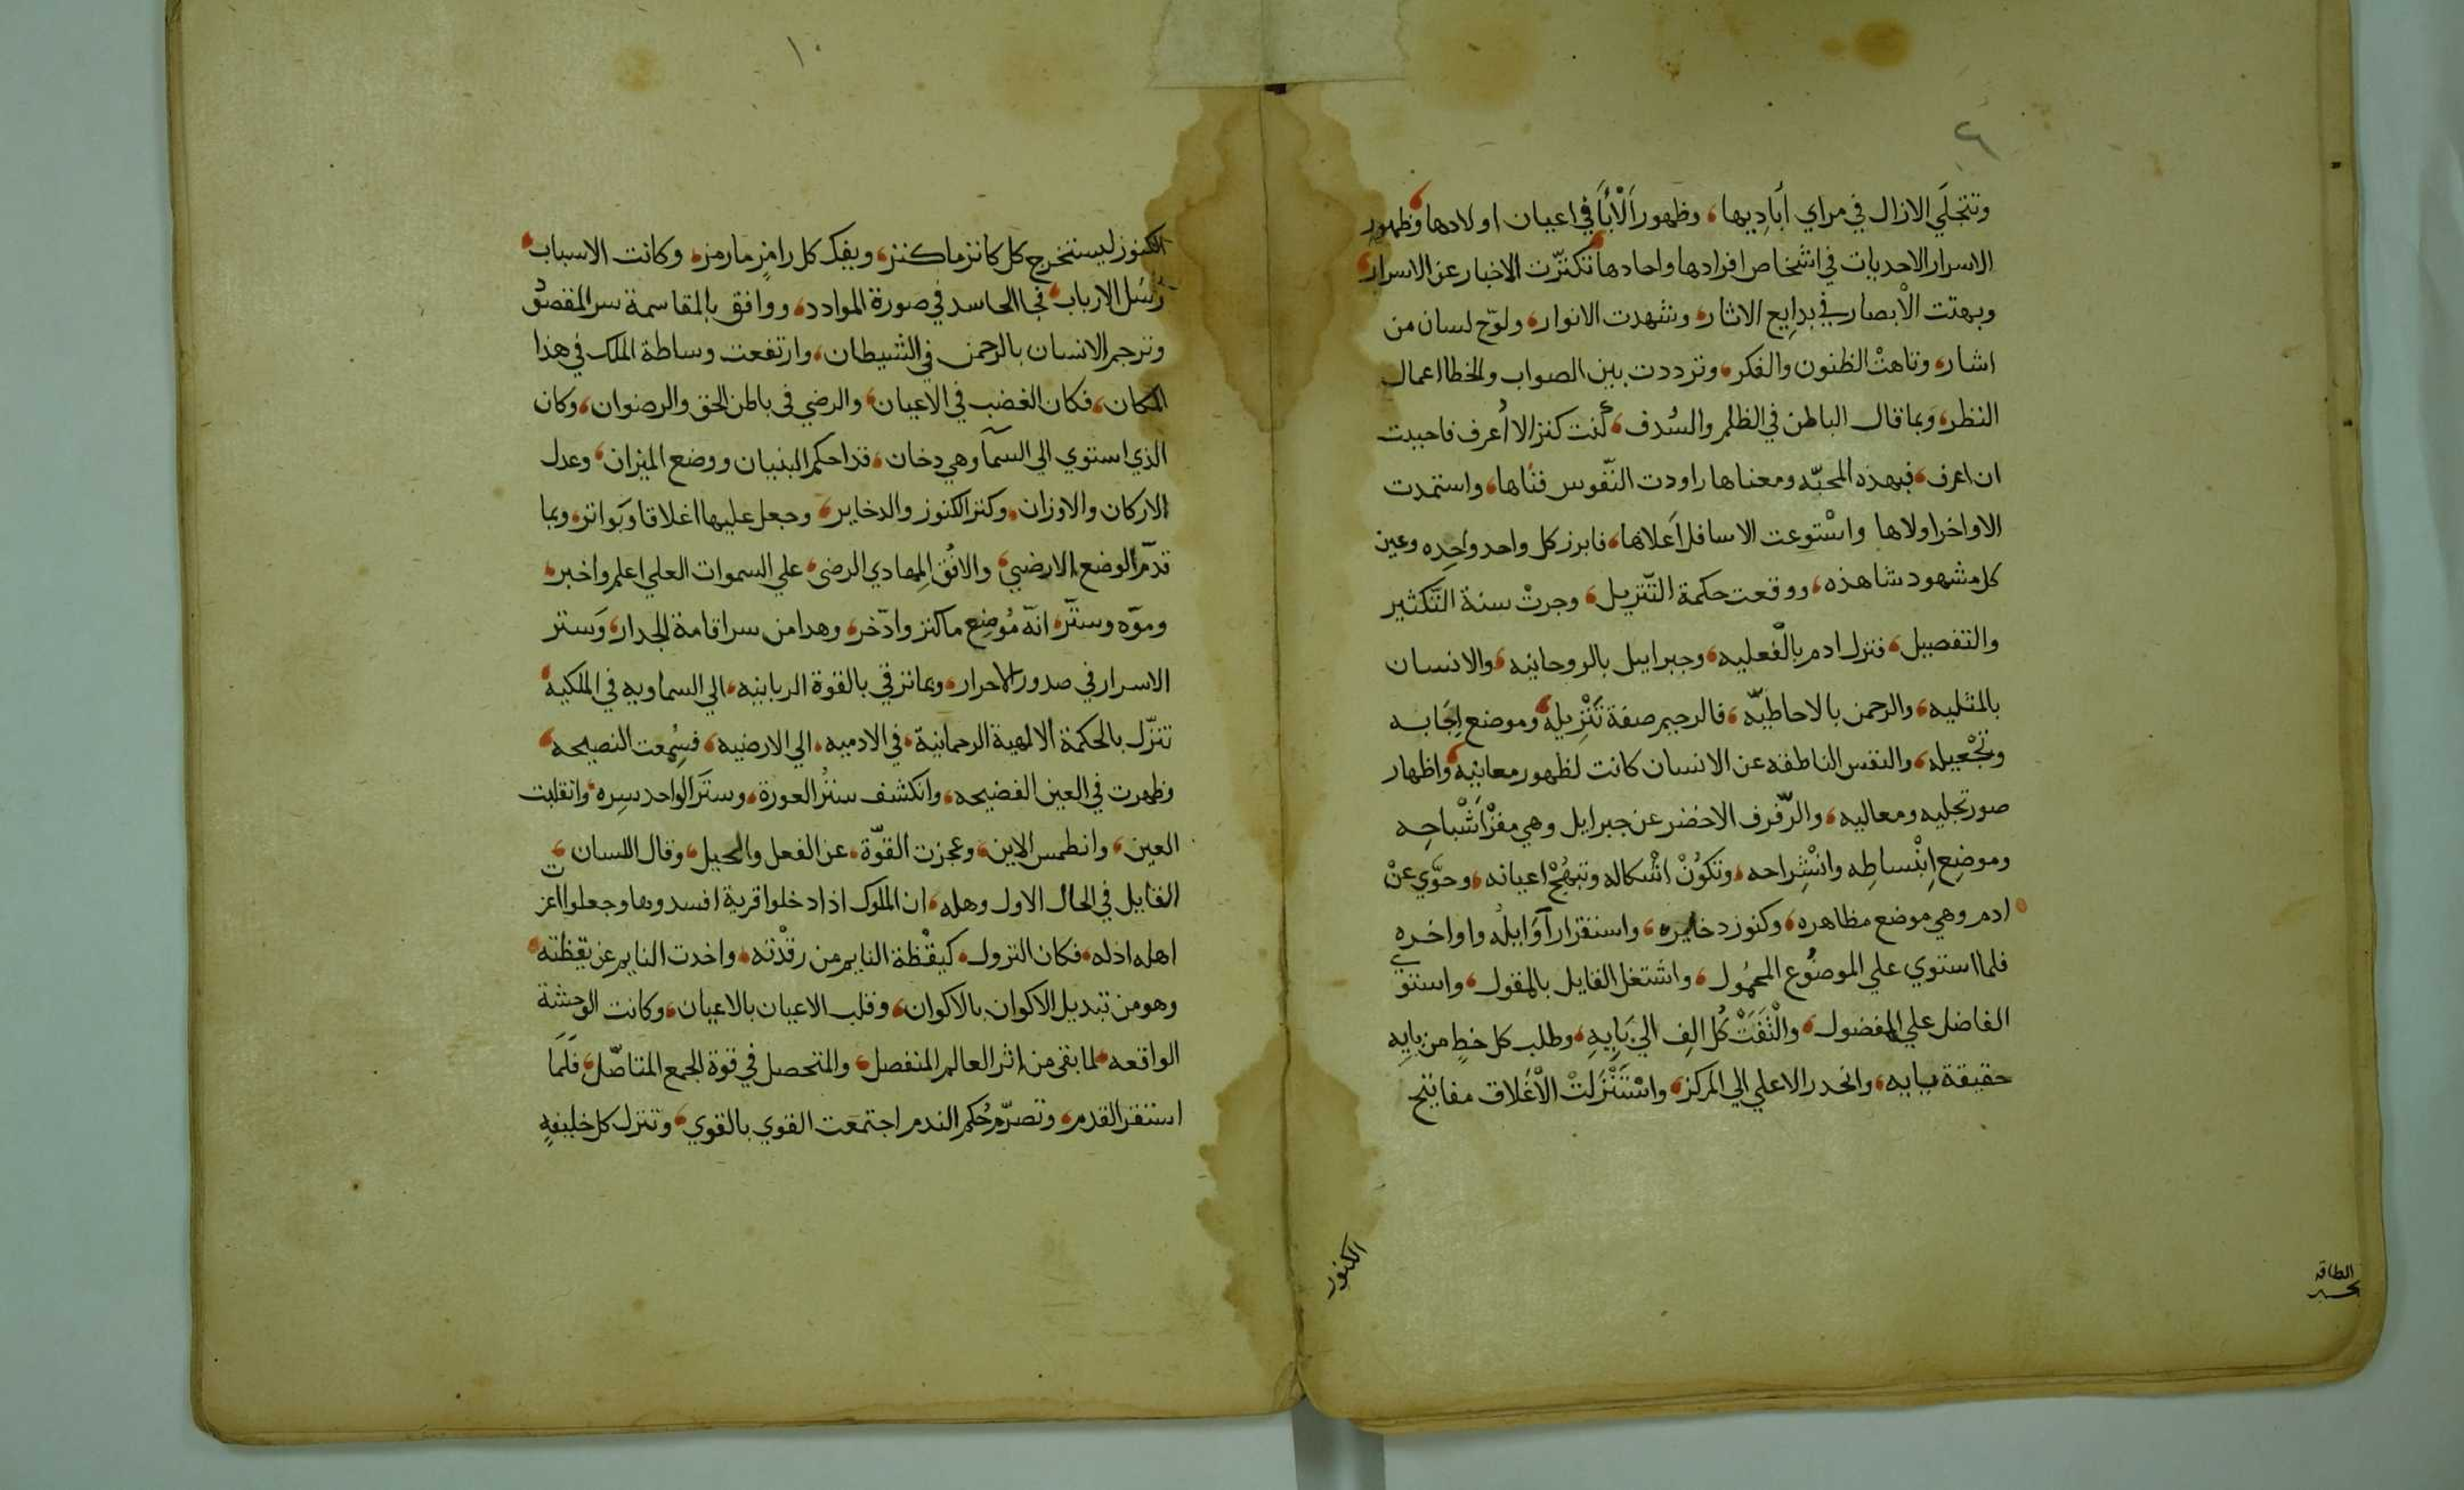 ٩
وتتجلَي الازال في مراي أبادِيها، وظهور الْاٰبَآَ في اعيان اولادها، وظهور
الاسرار الاحديات في اشخاص افرادها واحادها، تكنزّت الاخبار عن الاسرار،
وبهتت الْابصار في بدايِع الاثار، وشهدت الانوار، ولوّح لسان من
اشار، وتاهتْ الظنون والفكر، وترددت بين الصواب والخطا اعمال
النظر، وبما قال الباطن في الظلم والسُدف، كُنت كنزا لا اُعرف فاحببت
ان اعرف، فبهذه المحبّه ومعناها راودت النّفوس فتاها، واستمدت
الاواخر اولاها واسْتوعت الاسافل اَعلاها، فابرز كل واحد واحِده وعين
كل مشهود شاهذه، ووقعت حكمة التّنزيل، وجرتْ سنة التَّكثير
والتفصيل، فنزل ادم بالْفعليه، وجبراييل بالروحانيه، والانسان
بالمثليه، والرحمن بالاحاطيّه، فالرجيم صفة تَنْزِيله، وموضع اِجَابه
وتجْعيله، والنفس الناطقه عن الانسان كانت لظهور معانيه، واظهار
صور تجليه ومعاليه، والرّفرف الاخضر عن جبرايل وهي مفرّ اَشْباحِه
وموضِع اِنْبْساطِه وانْشِراحه، وتكوُنْ اشْكاله وتبهُجْ اعيانه، وحوّي عنْ
ادم وهي موضع مظاهره، وكنوز دخايره، واستقرار اَوَايلُه واواخره
فلما استوي علي الموضوُع المحمُول، واشتغل القايل بالمقول، واستوي
الفاضل علي المفضول، والْتَفَتْ كُل الِف الي بَايِهِ، وطلب كل خطٍ من بايِه
حقيقة بيايه، وانحدر الاعلي الي المركز، واسْتَنْزَلتْ الْاَغلاق مفاتيح
الكنوز
١٠
الكنوز ليستخرج كل كانز ما كنز، ويفك كل رامزٍ ما رمز، وكانت الاسباب،
رُسُل الارباب، فجا الحاسد في صورة الموادد، ووافق بالمقاسمة سر المقصود
وترجم الانسان بالرحمن في الشيطان، وارتفعت وساطة الملك في هذا
المكان، فكان الغضب في الاعيان، والرضي في باطن الحق والرضوان، وكان
الذي استوي الي السمآ وهي دخان، قد احكم البنيان ووضع الميزان، وعدل
الاركان والاوزان، وكنز الكنوز والدخاير، وجعل عليها اغلاقا وبَواتر، وبما
قدّم الوضع الارضيِي، والافُق المِهادي الرضى، علي السموات العلي اعلم واخبر،
وموّه وستّر، انّه مُوضِع ما كنز وادّخر، وهدا من سر اقامة الجدار، وَستر
الاسرار في صدور الاحرار، وبما ترقي بالقوة الربانيه، الي السماويه في الملكيه،
تنزّل بالحكمة الالهية الرحمانيّة، في الادميه، الي الارضيه، فسِمُعت النصيحه،
وظهرت في العين الفضيحه، وانكشف ستْرُ العورة، وستَر الواحد سِره، وانقلبت
العين، وانطمس الاين، وعجزت القوّة، عن الفعل والحيل، وقال اللسان،
القايل في الحال الاول وهله، ان الملوك اذا دخلوا قرية افسدوها وجعلوا اعزت
اهله اذله، فكان النزول، كيقْظة النايم من رقدْته، واخدت النايم عن يقظته،
وهو من تبديل الاكوان بالاكوان، وقلب الاعيان بالاعيان، وكانت الوحشة
الواقعه، لما بقى من اثر العالم المنفصل، والمتحصل في قوة الجمع المتاصّل، فَلَما
استقر القدم، وتصرّم حُكم الندم اجتمَعت القوي بالقوي، وتنزل كل خليفهٍ